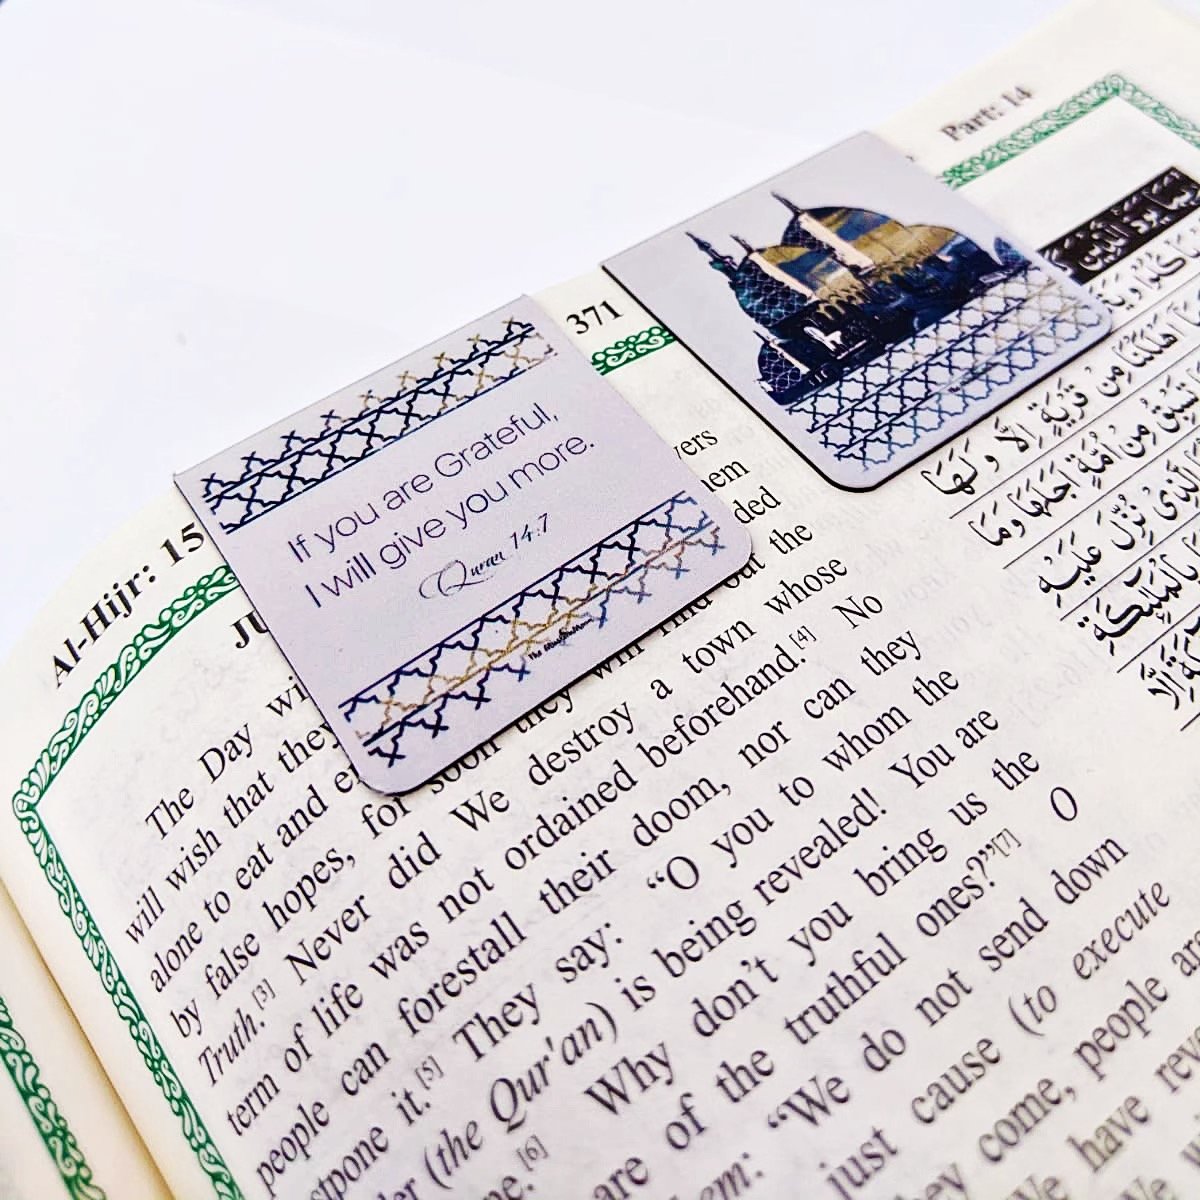 Part: 14
371
Al-Hijr: 15
If you are Grateful,
I will give you more.
Quran 14:7
JU
The Day wi
will wish that they
alone to eat and e
by false hopes, for soon they will find out the
Truth.[3] Never did We destroy a town whose
term of life was not ordained beforehand.[4] No
people can forestall their doom, nor can they
stpone it.[5] They say: “O you to whom the
er (the Qur'an) is being revealed! You are
e.[6] Why don’t you bring us the
are of the truthful ones?”[7] O
em: “We do not send down
just cause (to execute
ey come, people are
We have reve
vers
hem
ded
رُبَمَا يَوَدُّ الَّذِينَ
أَهْلَكْنَا مِنْ قَرْيَةٍ إِلَّا وَلَهَا
تَسْبِقُ مِنْ أُمَّةٍ أَجَلَهَا وَمَا
الَّذِي نُزِّلَ عَلَيْهِ
بِالْمَلَٰئِكَةِ